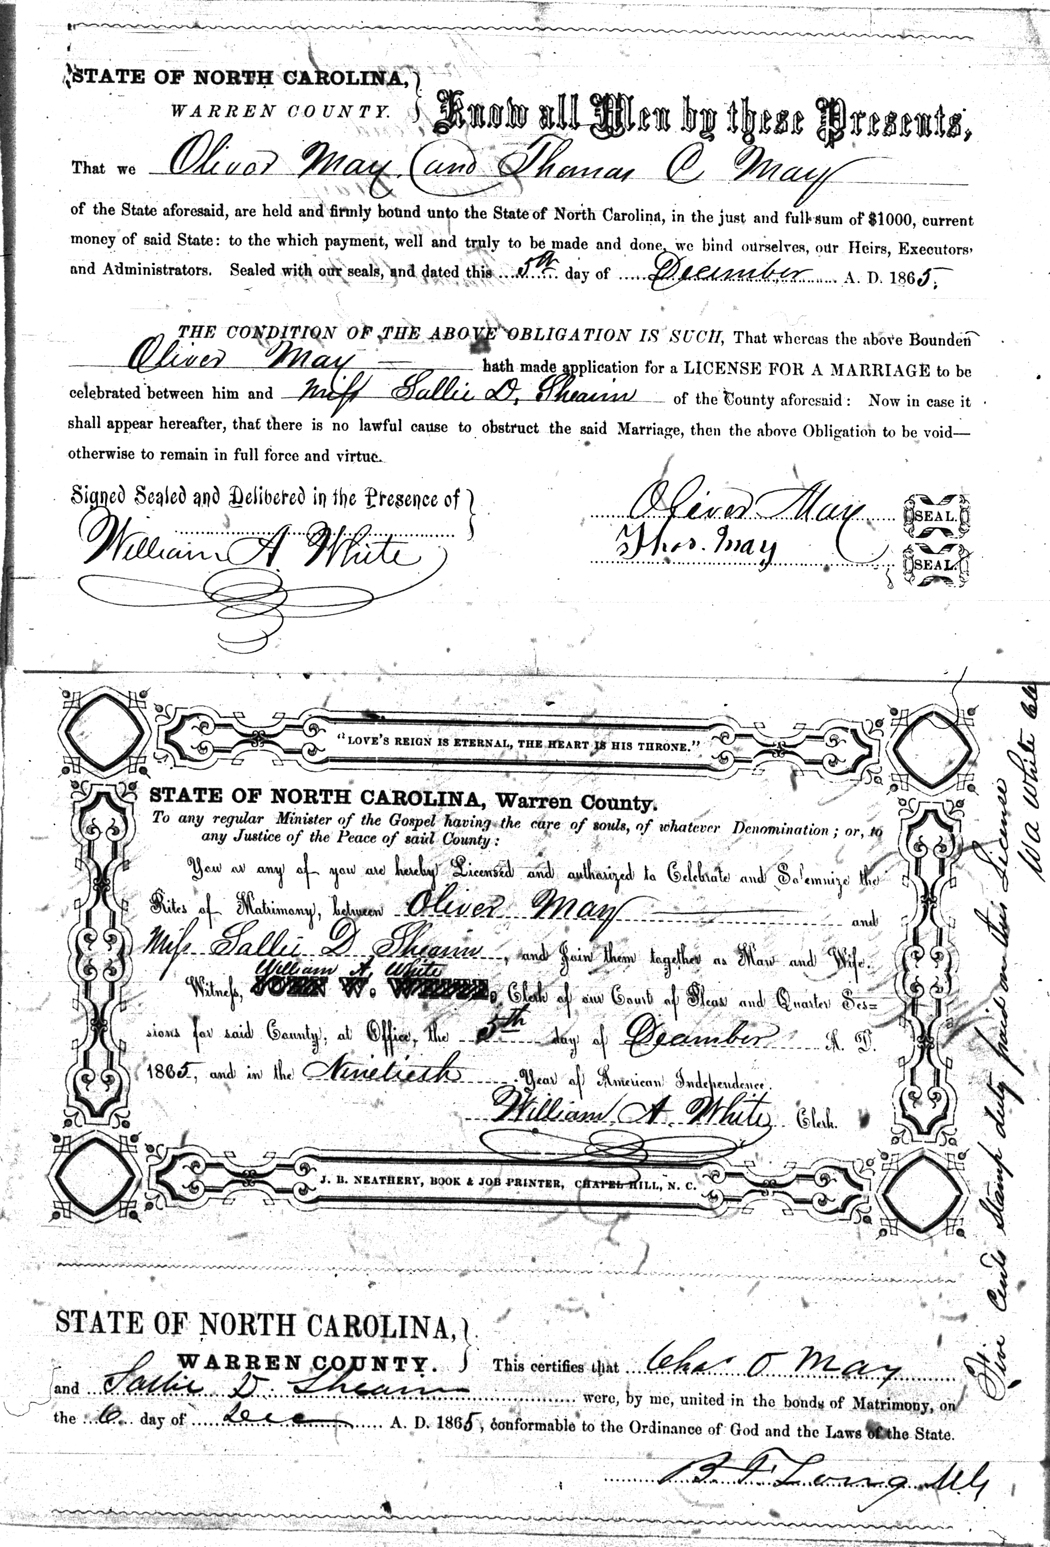 STATE OF NORTH CAROLINA,
WARREN COUNTY.
Know all Men by these Presents,
That we Oliver May and Thomas C May
of the State aforesaid, are held and firmly bound unto the State of North Carolina, in the just and full sum of $1000, current
money of said State: to the which payment, well and truly to be made and done, we bind ourselves, our Heirs, Executors,
and Administrators. Sealed with our seals, and dated this 5th day of December A. D. 1865.
THE CONDITION OF THE ABOVE OBLIGATION IS SUCH, That whereas the above Bounden
Oliver May hath made application for a LICENSE FOR A MARRIAGE to be
celebrated between him and Miss Sallie D. Shearin of the County aforesaid: Now in case it
shall appear hereafter, that there is no lawful cause to obstruct the said Marriage, then the above Obligation to be void—
otherwise to remain in full force and virtue.
Signed Sealed and Delivered in the Presence of
William A. White
Oliver May SEAL.
Thos. May SEAL.
"LOVE'S REIGN IS ETERNAL, THE HEART IS HIS THRONE."
STATE OF NORTH CAROLINA, Warren County.
To any regular Minister of the Gospel having the care of souls, of whatever Denomination; or, to
any Justice of the Peace of said County:
You or any of you are hereby Licensed and authorized to Celebrate and Solemnize the
Rites of Matrimony, between Oliver May and
Miss Sallie D Shearin, and Join them together as Man and Wife.
William A. White
Witness, JOHN W. WHITE, Clerk of our Court of Pleas and Quarter Ses-
sions for said County, at Office, the 5th day of December A. D.
1865, and in the Ninetieth Year of American Independence.
William A. White Clerk.
J. B. NEATHERY, BOOK & JOB PRINTER, CHAPEL HILL, N. C.
Five Cents Stamp duty paid on this License
W A White Clk
STATE OF NORTH CAROLINA,
WARREN COUNTY.
This certifies that Chas O May
and Sallie D. Shearin were, by me, united in the bonds of Matrimony, on
the 6 day of Dec A. D. 1865, conformable to the Ordinance of God and the Laws of the State.
B F Long M.G